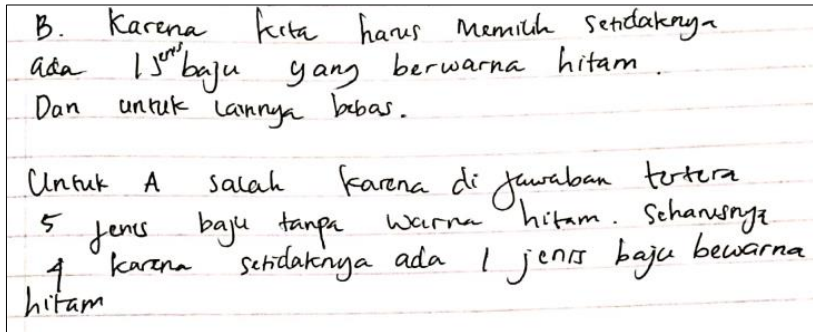 B. Karena kita harus memilih setidaknya
ada 1 jenis baju yang berwarna hitam.
Dan untuk lainnya bebas.
Untuk A salah karena di jawaban tertera
5 jenis baju tanpa warna hitam. Seharusnya
4 karena setidaknya ada 1 jenis baju bewarna
hitam